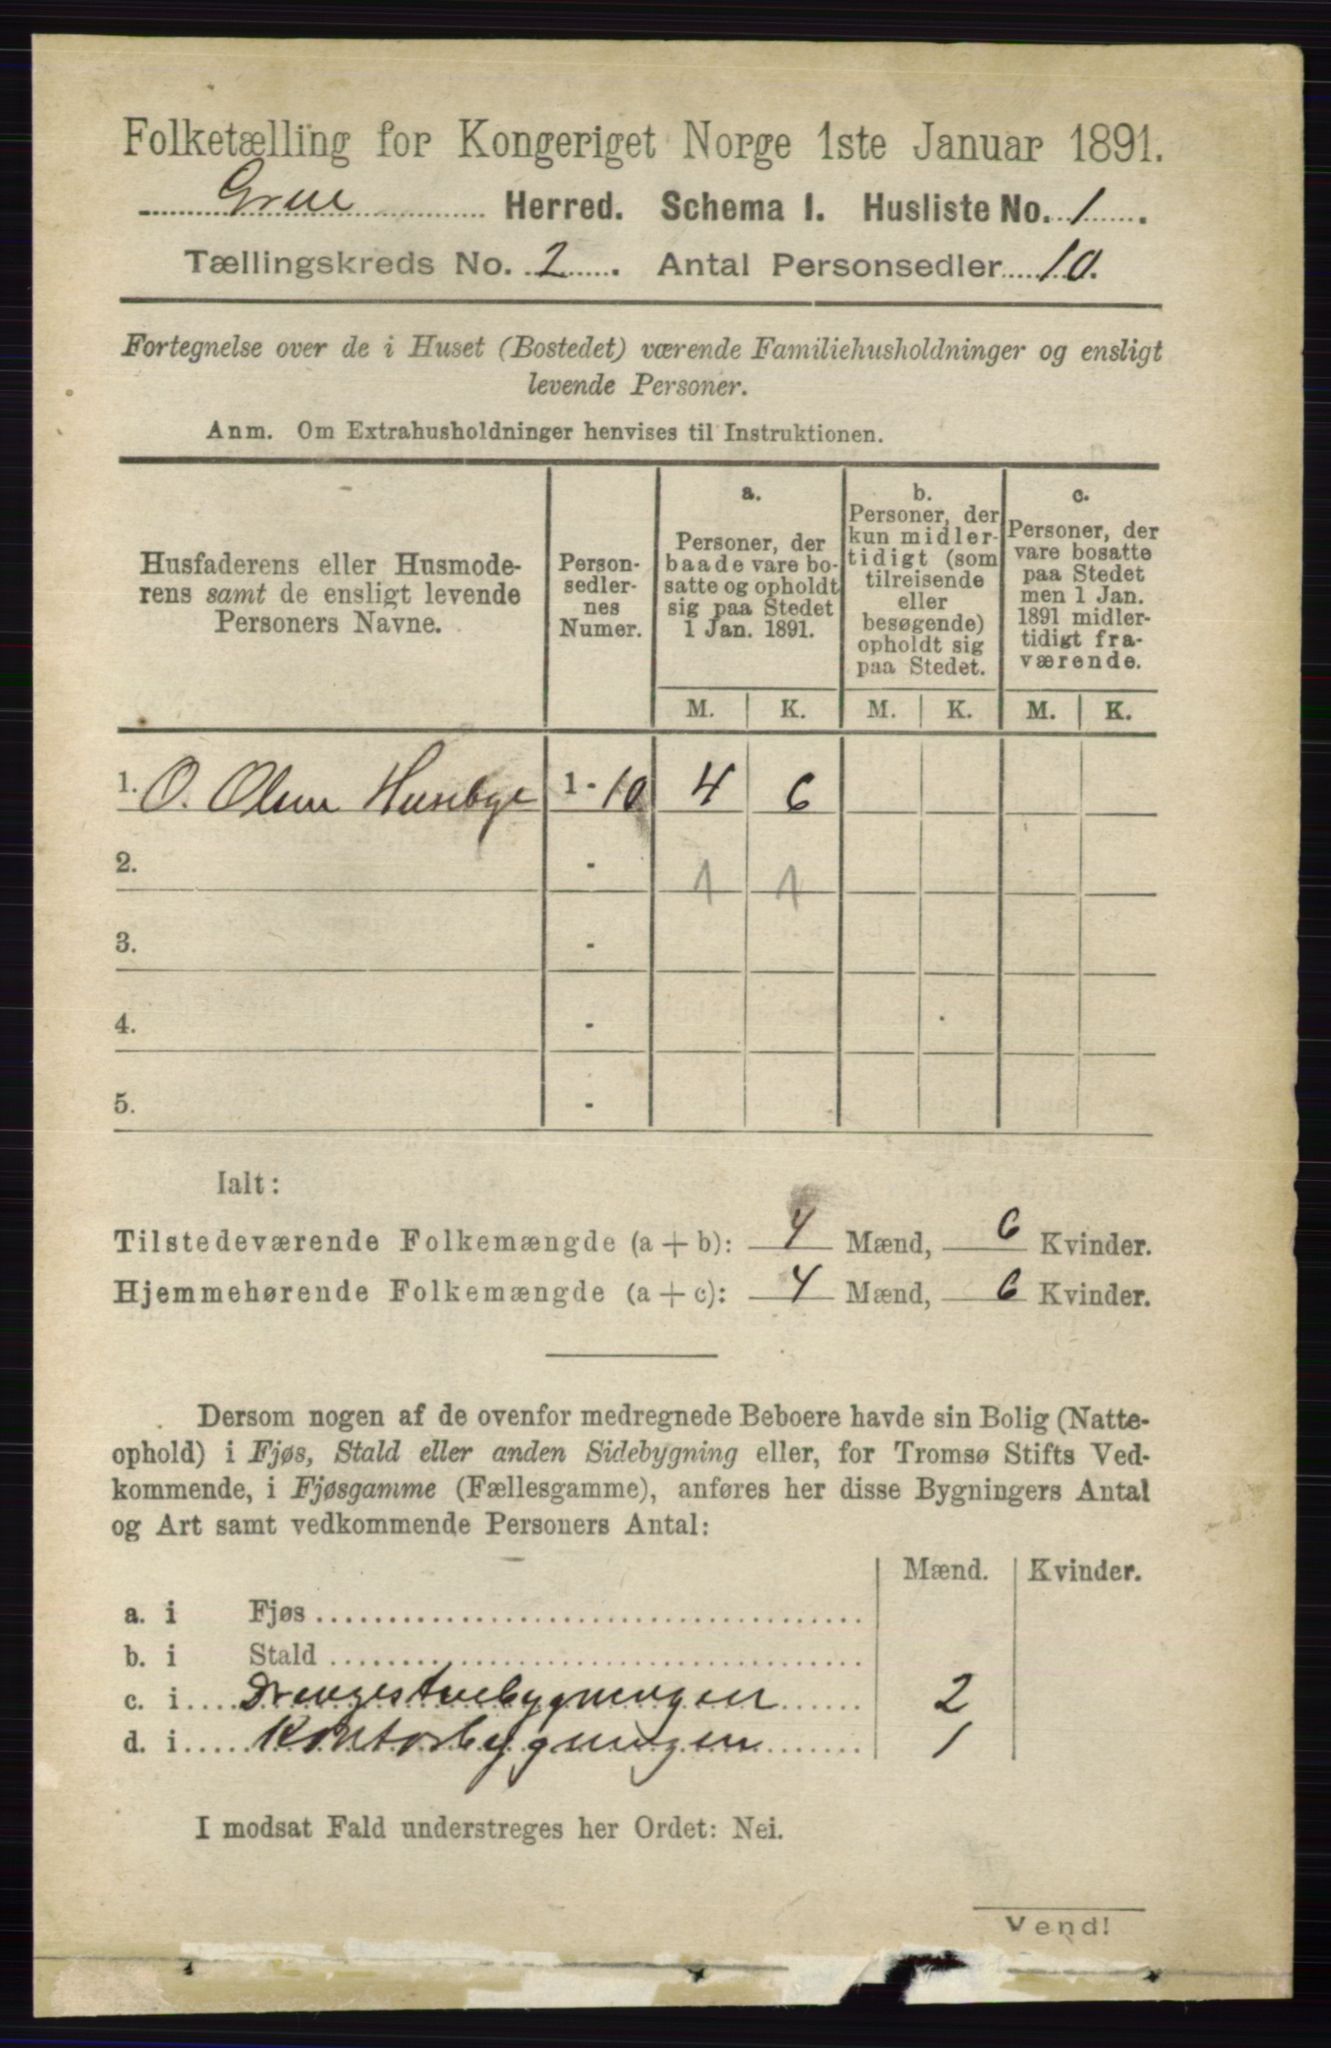 Folketælling for Kongeriget Norge 1ste Januar 1891.
Grue Herred. Schema I. Husliste No. 1.
Tællingskreds No. 2. Antal Personsedler 10.
Fortegnelse over de i Huset (Bostedet) værende Familiehusholdninger og ensligt
levende Personer.
Anm. Om Extrahusholdninger henvises til Instruktionen.
Husfaderens eller Husmode-
rens samt de ensligt levende
Personers Navne.
Person-
sedler-
nes
Numer.
a.
Personer, der
baade vare bo-
satte og opholdt
sig paa Stedet
1 Jan. 1891.
b.
Personer, der
kun midler-
tidigt (som
tilreisende
eller
besøgende)
opholdt sig
paa Stedet.
c.
Personer, der
vare bosatte
paa Stedet
men 1 Jan.
1891 midler-
tidigt fra-
værende.
M. K. M. K. M. K.
1. O. Olsen Husebye 1 - 10 4 6
2. - 1 1
3. -
4. -
5. -
Ialt:
Tilstedeværende Folkemængde (a + b): 4 Mænd, 6 Kvinder.
Hjemmehørende Folkemængde (a + c): 4 Mænd, 6 Kvinder.
Dersom nogen af de ovenfor medregnede Beboere havde sin Bolig (Natte-
ophold) i Fjøs, Stald eller anden Sidebygning eller, for Tromsø Stifts Ved-
kommende, i Fjøsgamme (Fællesgamme), anføres her disse Bygningers Antal
og Art samt vedkommende Personers Antal:
Mænd. Kvinder.
a. i Fjøs
b. i Stald
c. i Drengestuebygningen 2
d. i Kontorbygningen 1
I modsat Fald understreges her Ordet: Nei.
Vend!